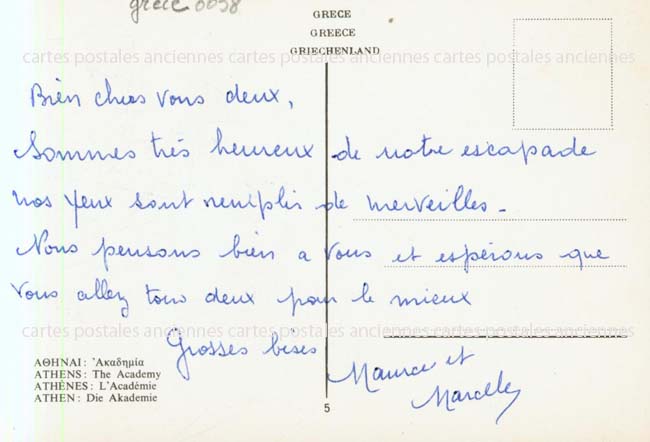 grece 0098
GRECE
GREECE
GRIECHENLAND
cartes postales anciennes cartes postales anciennes cartes postales anciennes
Bien chers vous deux,
Sommes très heureux de notre escapade
nos yeux sont remplis de merveilles -
Nous pensons bien a vous et espérons que
vous allez tous deux pour le mieux
cartes postales anciennes cartes postales anciennes cartes postales anciennes
Grosses bises
Maurice et
Marcelle
ΑΘΗΝΑΙ: Ἀκαδημία
ATHENS: The Academy
ATHÈNES: L'Académie
ATHEN: Die Akademie
5